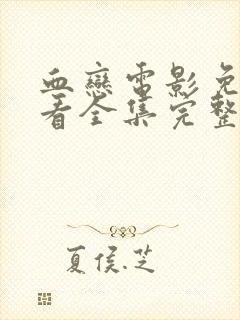 血戀電影免
看全集完整
夏侯.芝